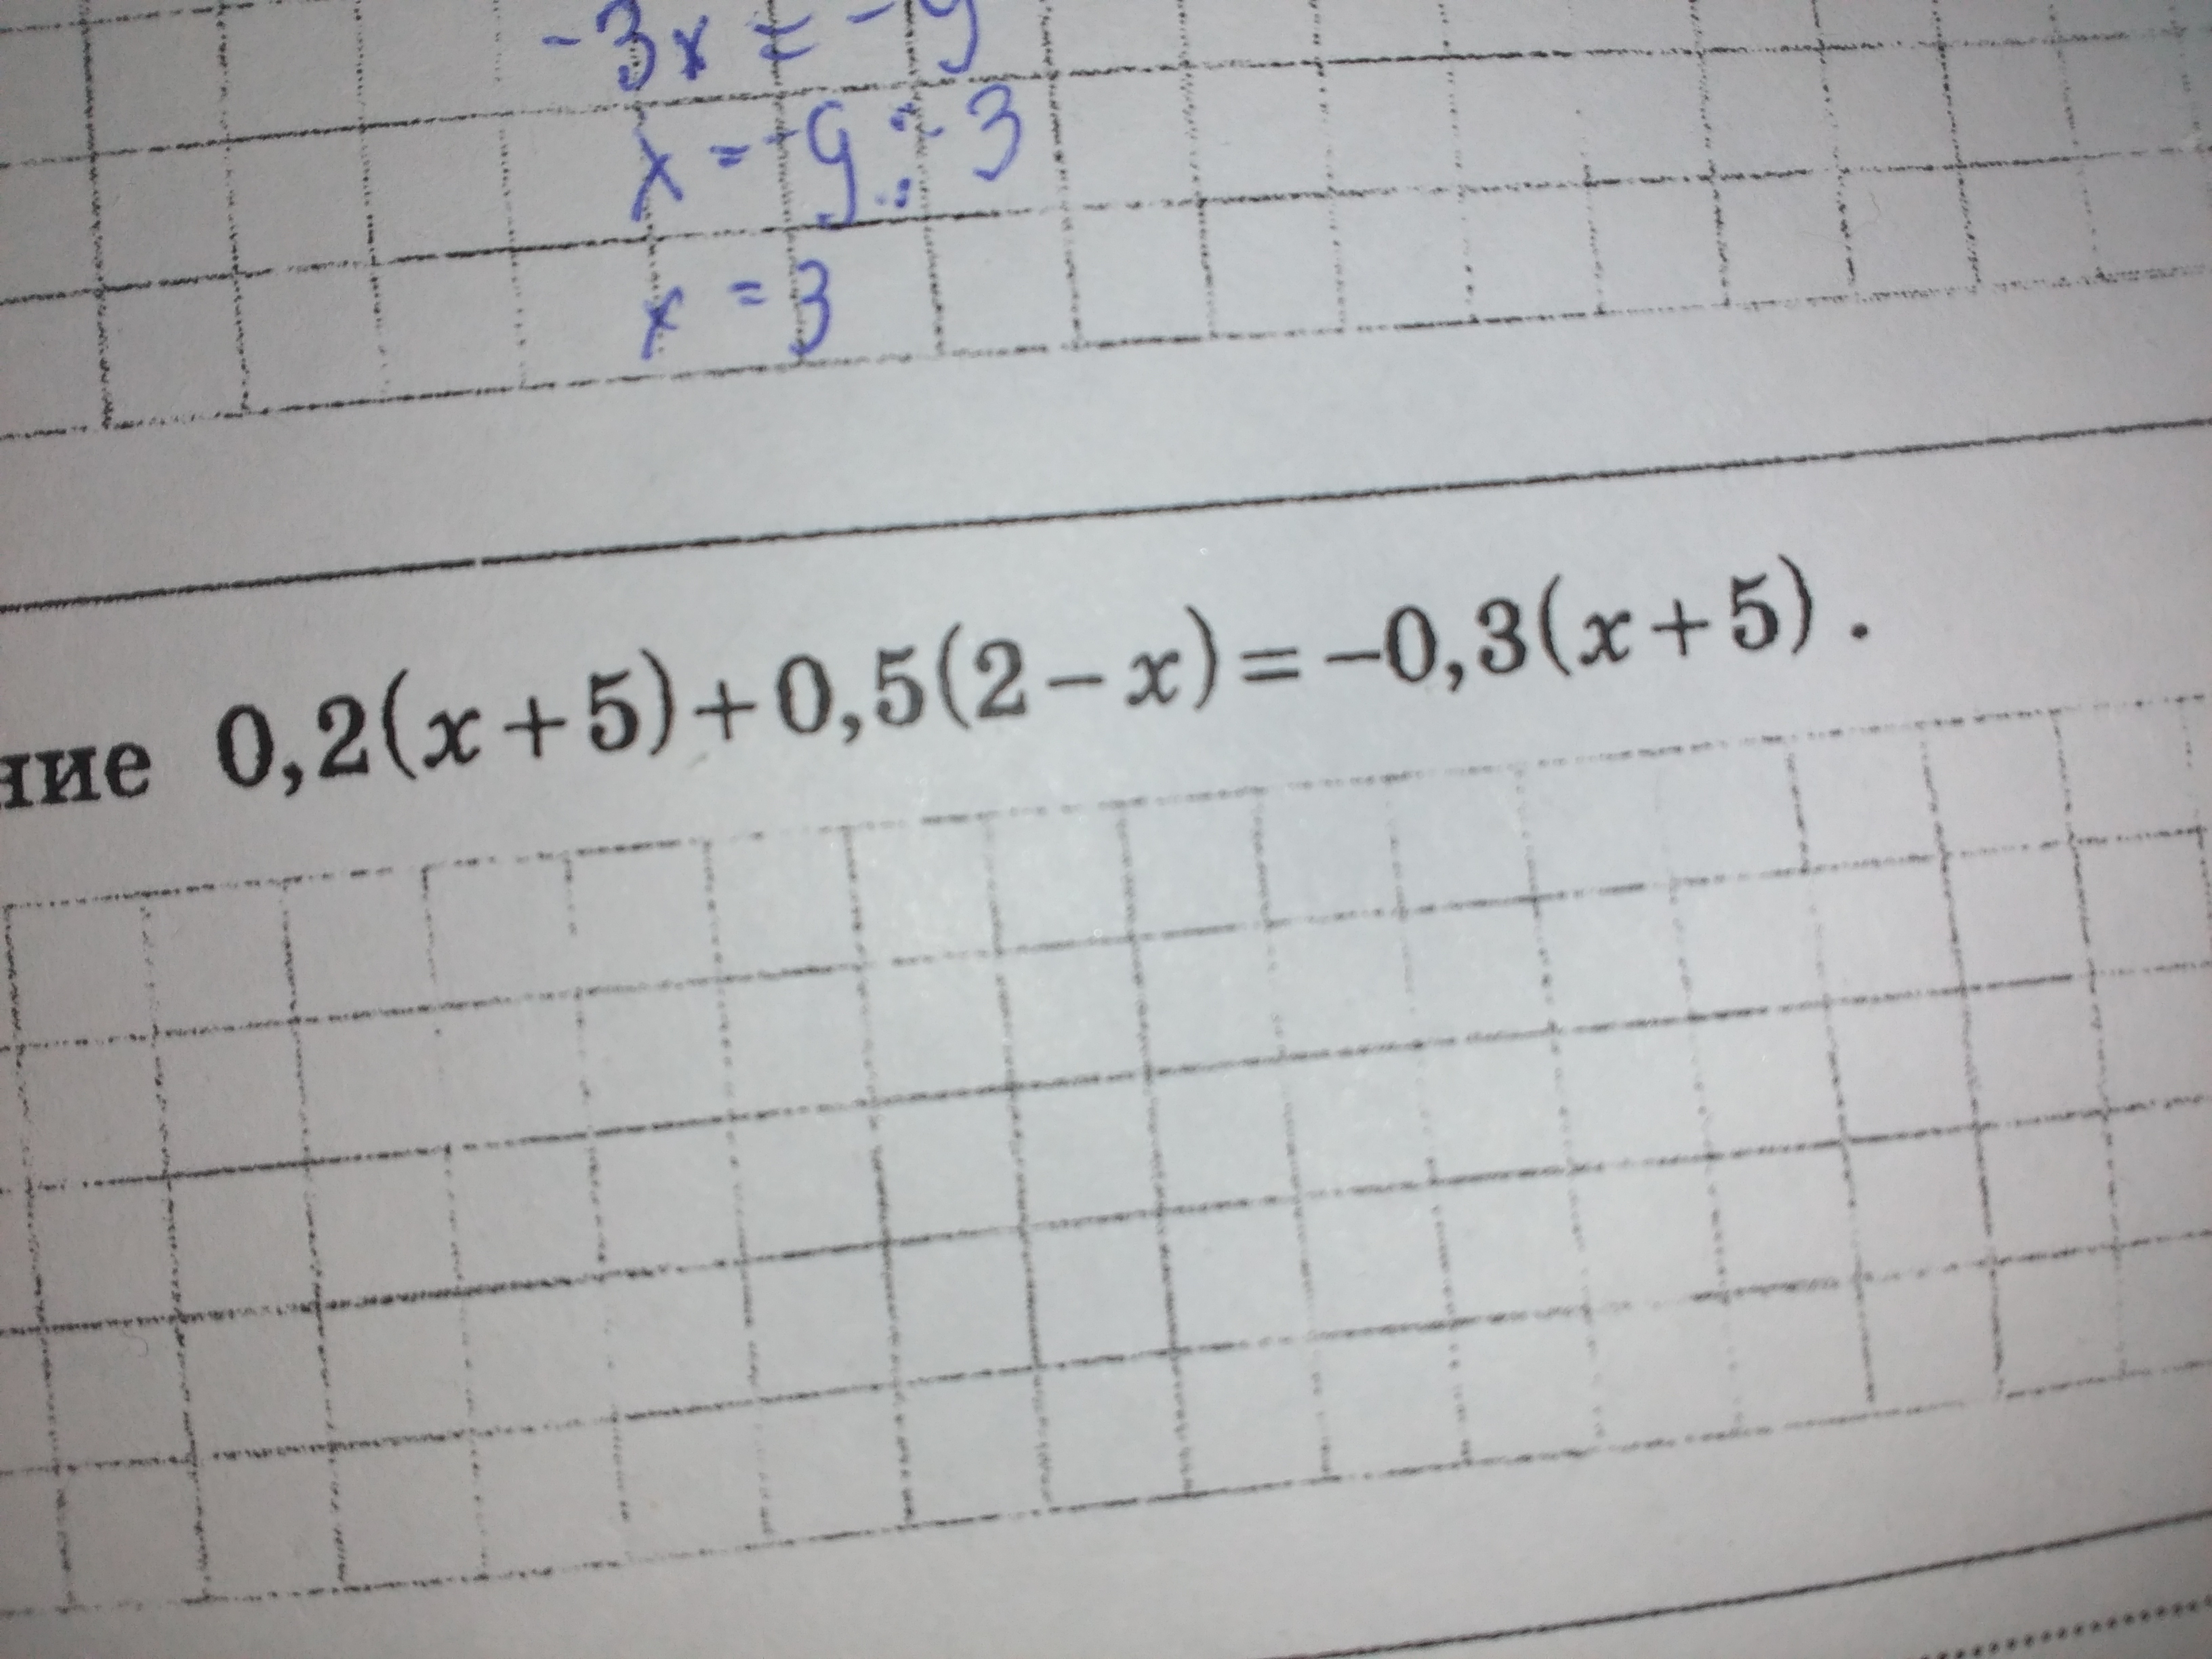 -3x = -9
x = -9 : -3
x = 3
0,2(x+5)+0,5(2-x)=-0,3(x+5).